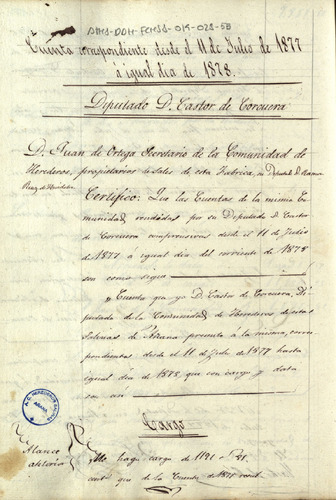 AÑHA-DDH-FCMSA-014-028-58
Cuenta correspondiente desde el 11 de Julio de 1877
á igual dia de 1878.
Diputado D. Castor de Corcuera
D. Juan de Ortega Secretario de la Comunidad de
Herederos, propietarios de esta Fabrica, su Diputado D. Ramon
Certifico: Que las Cuentas de la misma Co
munidad rendidas por su Diputado D. Castor
de Corcuera comprensivas desde el 11 de Julio
de 1877 á igual dia del corriente de 1878
son como sigue
Cuenta que yo D. Castor de Corcuera, Di
putado de la Comunidad de Herederos de estas
Salinas de Añana presento á la misma, corres
pondientes desde el 11 de Julio de 1877 hasta
igual dia de 1878, que con cargo y data
son así
Cargo
Alcance
anterior
Me hago cargo de 1121
cent. que de la Cuenta de 1877